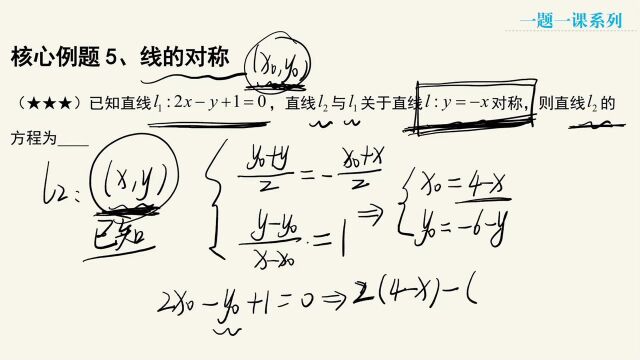 一题一课系列
核心例题 5、线的对称 (x₀,y₀)
(★★★)已知直线l₁:2x−y+1=0，直线l₂与l₁关于直线l:y=−x对称，则直线l₂的
方程为____
l₂: (x,y)
已知
{ (y₀+y)/2 = −(x₀+x)/2
(y−y₀)/(x−x₀) = 1
⇒ { x₀=4−x
y₀=−6−y
2x₀−y₀+1=0⇒2(4−x)−(